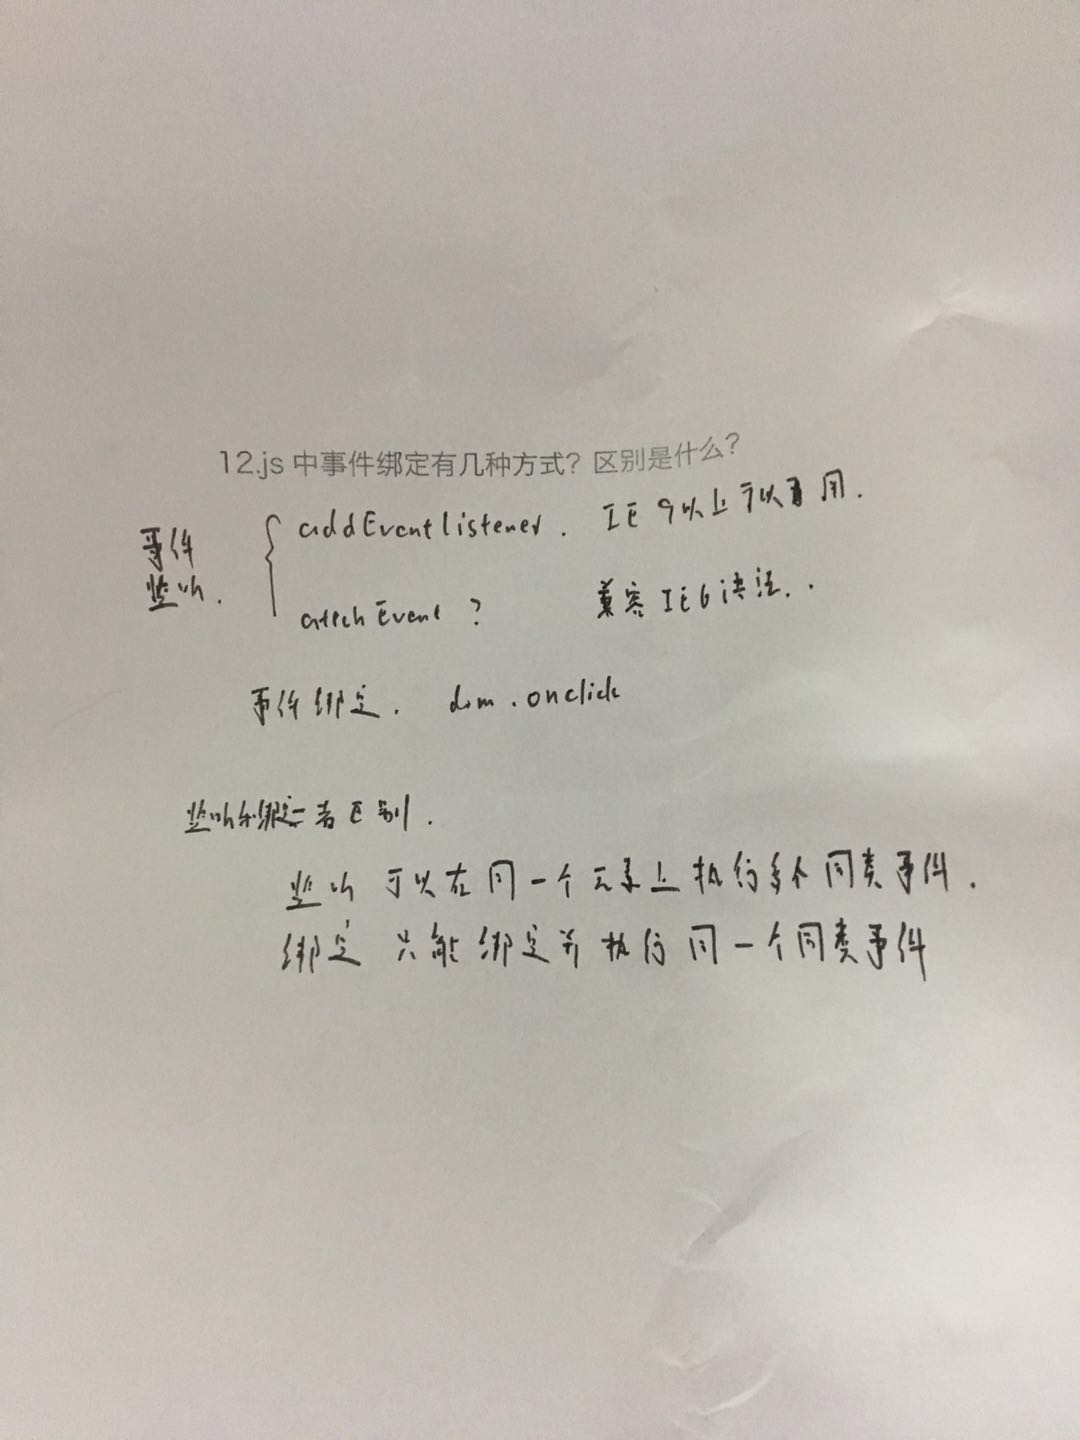 12.js 中事件绑定有几种方式？区别是什么？
事件
监听.
addEventlistener. IE 9以上可以用.
attchEvent ? 兼容 IE6 法.
事件绑定. dom.onclick
监听和绑定二者区别.
监听 可以在同一个元素上执行多个同类事件.
绑定 只能绑定并执行同一个同类事件